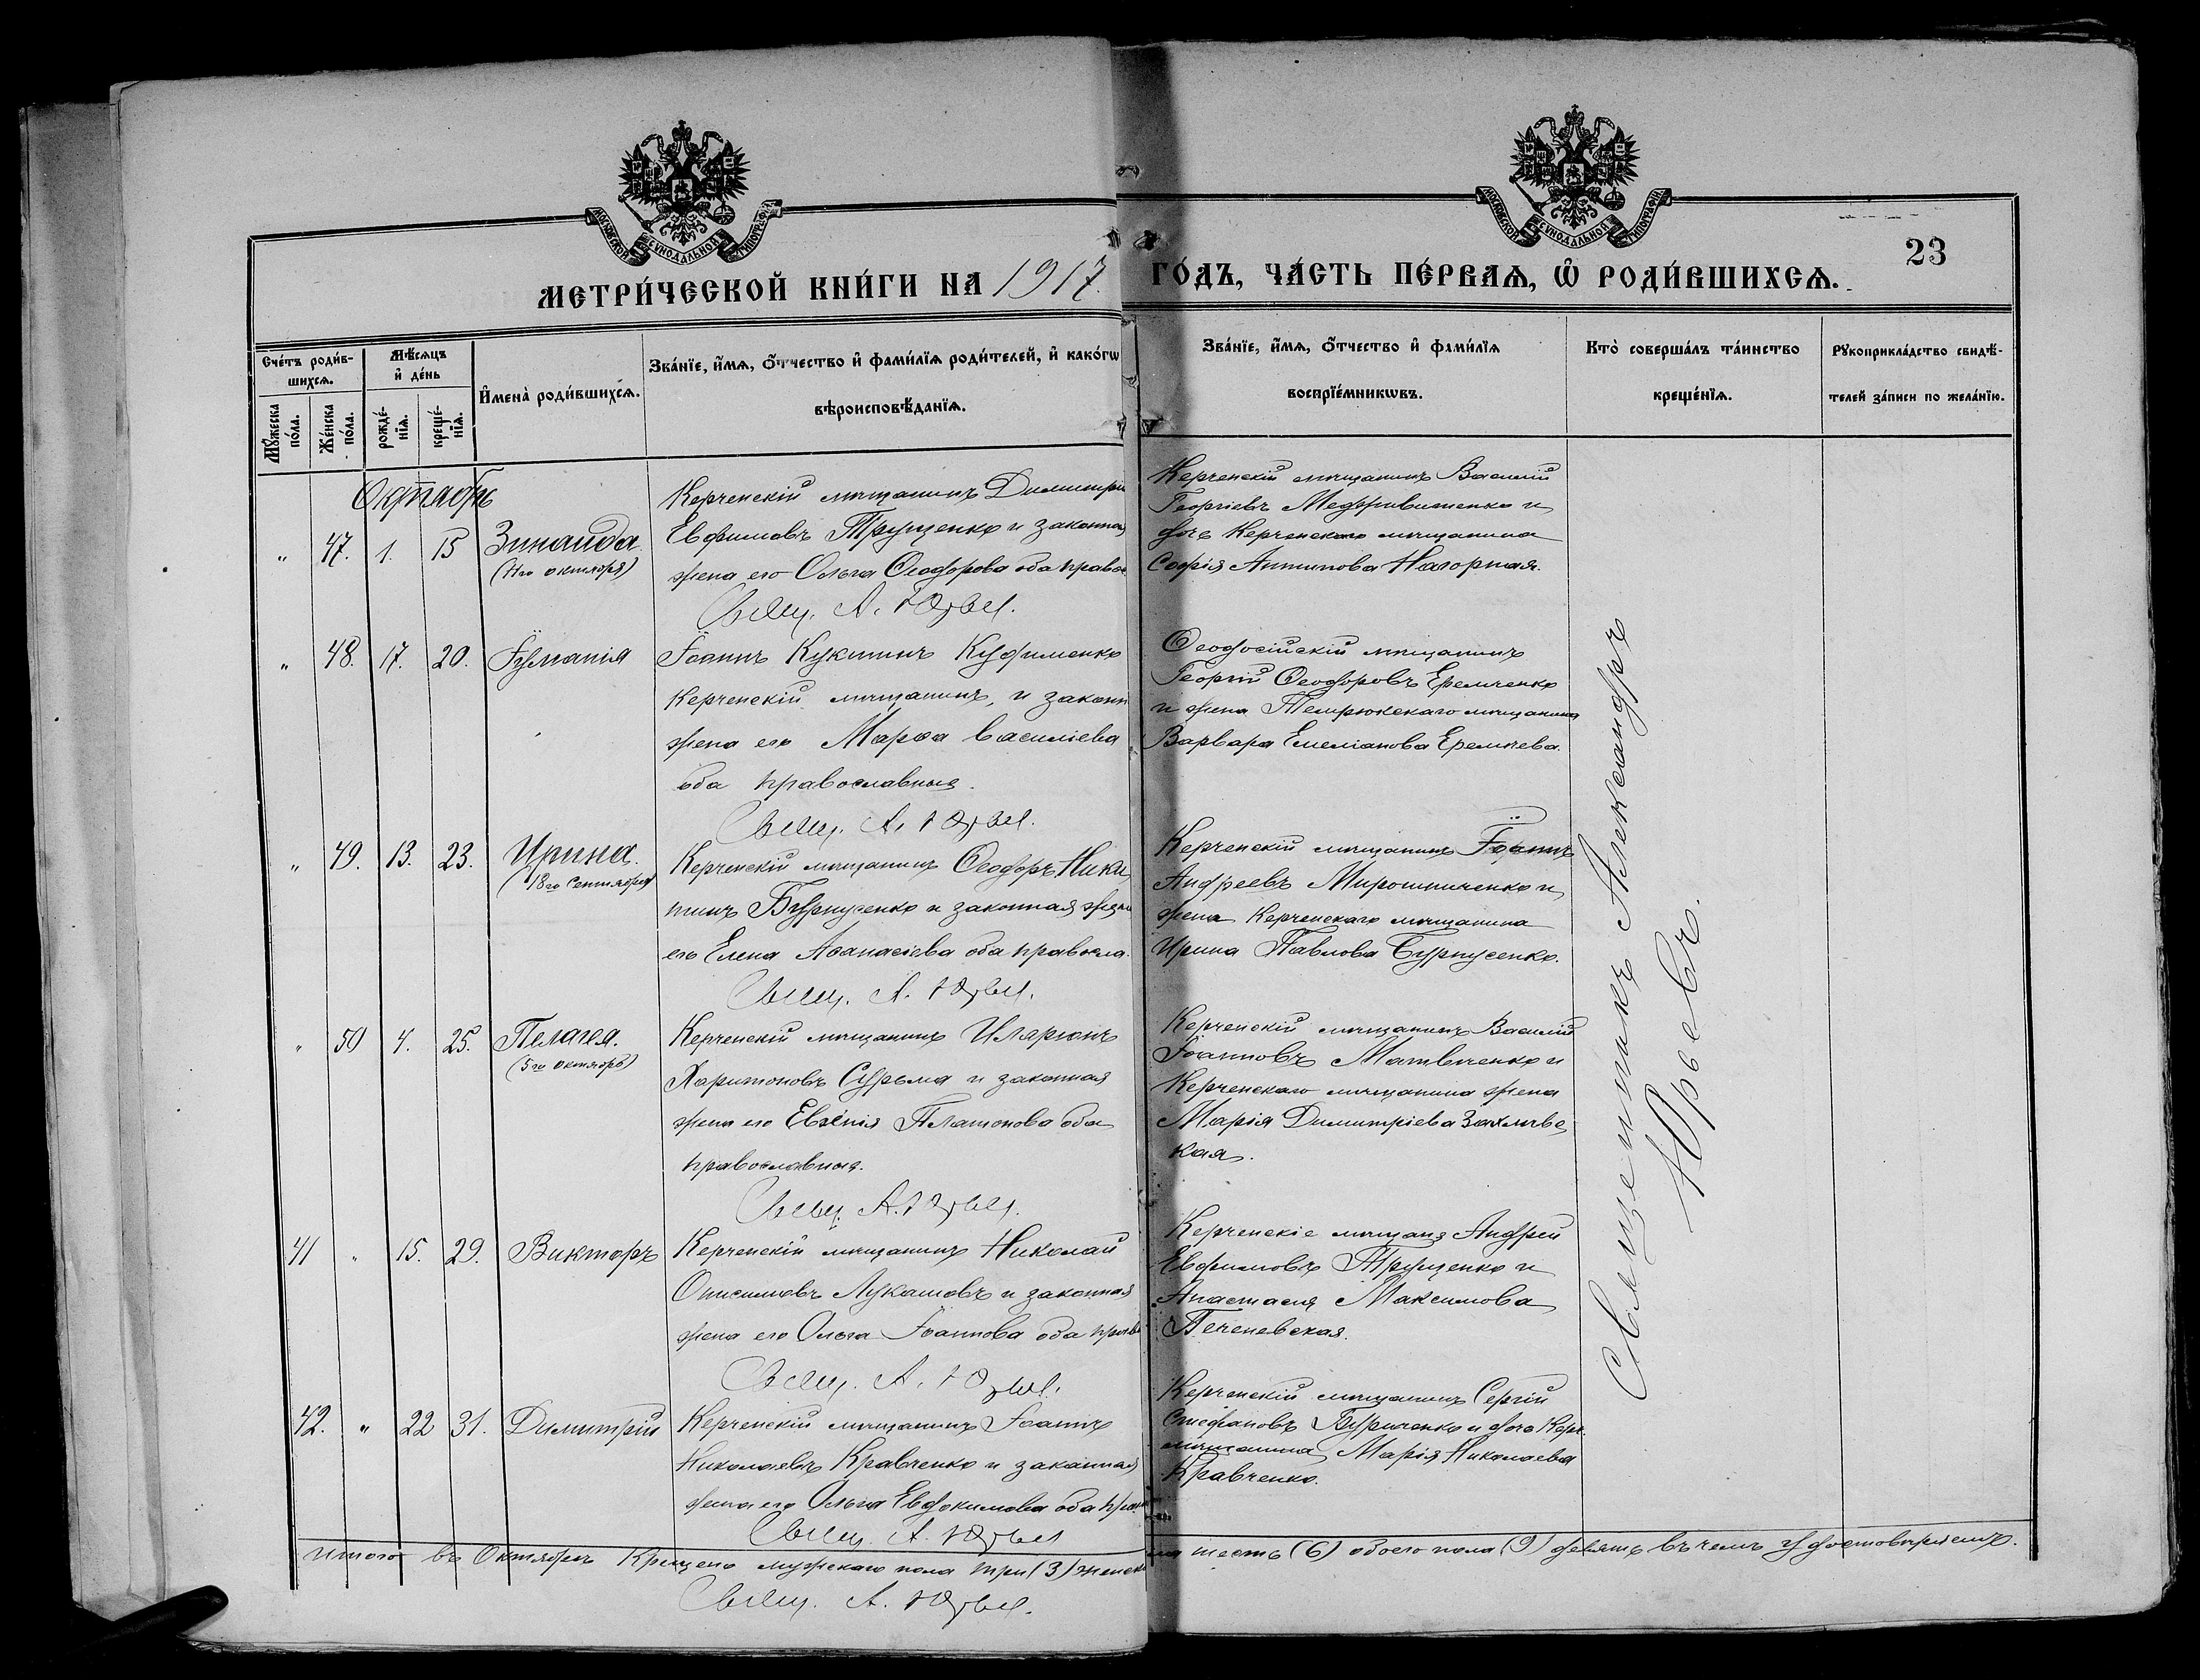 МОСКОВСКОЙ СѴНОДАЛЬНОЙ ТИПОГРАФИИ
МОСКОВСКОЙ СѴНОДАЛЬНОЙ ТИПОГРАФИИ
23
МЕТРИ́ЧЕСКОЙ КНИ́ГИ НА 1917 ГО́ДЪ, ЧА́СТЬ ПЕ́РВАѦ, Ѡ҆ РОДИ́ВШИХСѦ.
Сче́тъ роди́в-
шихсѧ.
Мꙋ́жеска по́ла.
Же́нска по́ла.
Мѣ́сѧцъ
и҆ де́нь
рожде́-
нїѧ.
креще́-
нїѧ.
И҆мена̀ роди́вшихсѧ.
Зва́нїе, и҆́мѧ, ѻ҆́тчество и҆ фами́лїѧ роди́телей, и҆ како́гѡ
вѣроисповѣ́данїѧ.
Зва́нїе, и҆́мѧ, ѻ҆́тчество и҆ фами́лїѧ
воспрїе́мникѡвъ.
Кто̀ соверша́лъ та́инство
креще́нїѧ.
Рꙋкоприкла́дство свидѣ́-
телей за́писи по жела́нїю.
Октябрь
" 47. 1. 15 Зинаида
(11го октября)
Керченскій мѣщанинъ Димитрій
Евфимовъ Трущенко и законная
жена его Ольга Ѳеодорова оба правос
Свящ. А. Юрьев.
Керченскій мѣщанинъ Василій
Георгіевъ и
дочь Керченскаго мѣщанина
Софія Антипова Нагорная.
" 48. 17. 20. Іуліанія
Іоаннъ Кузьминъ Куфименко
Керченскій мѣщанинъ, и законн
жена его Марѳа Василіева
оба православные.
Свящ. А. Юрьев.
Ѳеодосійскій мѣщанинъ
Георгій Ѳеодоровъ Еремченко
и жена Темрюкскаго мѣщанина
Варвара Емеліанова
" 49. 13. 23. Ирина.
(18го сентября)
Керченскій мѣщанинъ Ѳеодоръ Ники
тинъ Бурнусенко и законная жена
его Елена Аѳанасіева оба правосла.
Свящ. А. Юрьев.
Керченскій мѣщанинъ Іоаннъ
Андреевъ Мирошниченко и
жена Керченскаго мѣщанина
Ирина Павлова Бурнусенко.
" 50 4. 25. Пелагея.
(5го октября)
Керченскій мѣщанинъ Иларіонъ
Харитоновъ Сурьма и законная
жена его Евгенія Платонова оба
православные.
Свящ. А. Юрьев.
Керченскій мѣщанинъ Василій
Іоанновъ Матвѣенко и
Керченскаго мѣщанина жена
Марія Димитріева
кая.
41 " 15. 29. Викторъ
Керченскій мѣщанинъ Николай
Онисимовъ Лукашовъ и законная
жена его Ольга Іоаннова оба прав
Свящ. А. Юрьев.
Керченскіе мѣщане Андрей
Евфимовъ Трущенко и
Анастасія Максимова
Печеневская.
42. " 22 31. Димитрій
Керченскій мѣщанинъ Іоаннъ
Николаевъ Кравченко и законная
жена его Ольга Евдокимова оба прав
Свящ. А. Юрьев
Керченскій мѣщанинъ Сергій
Стефановъ и дочь Керч.
мѣщанина Марія Николаева
Кравченко.
Священникъ Александръ
Юрьевъ.
Итого въ Октябрѣ Крещено мужскаго пола три (3) женска
го шесть (6) обоего пола (9) девять въ чемъ и удостовѣряемъ.
Свящ. А. Юрьев.